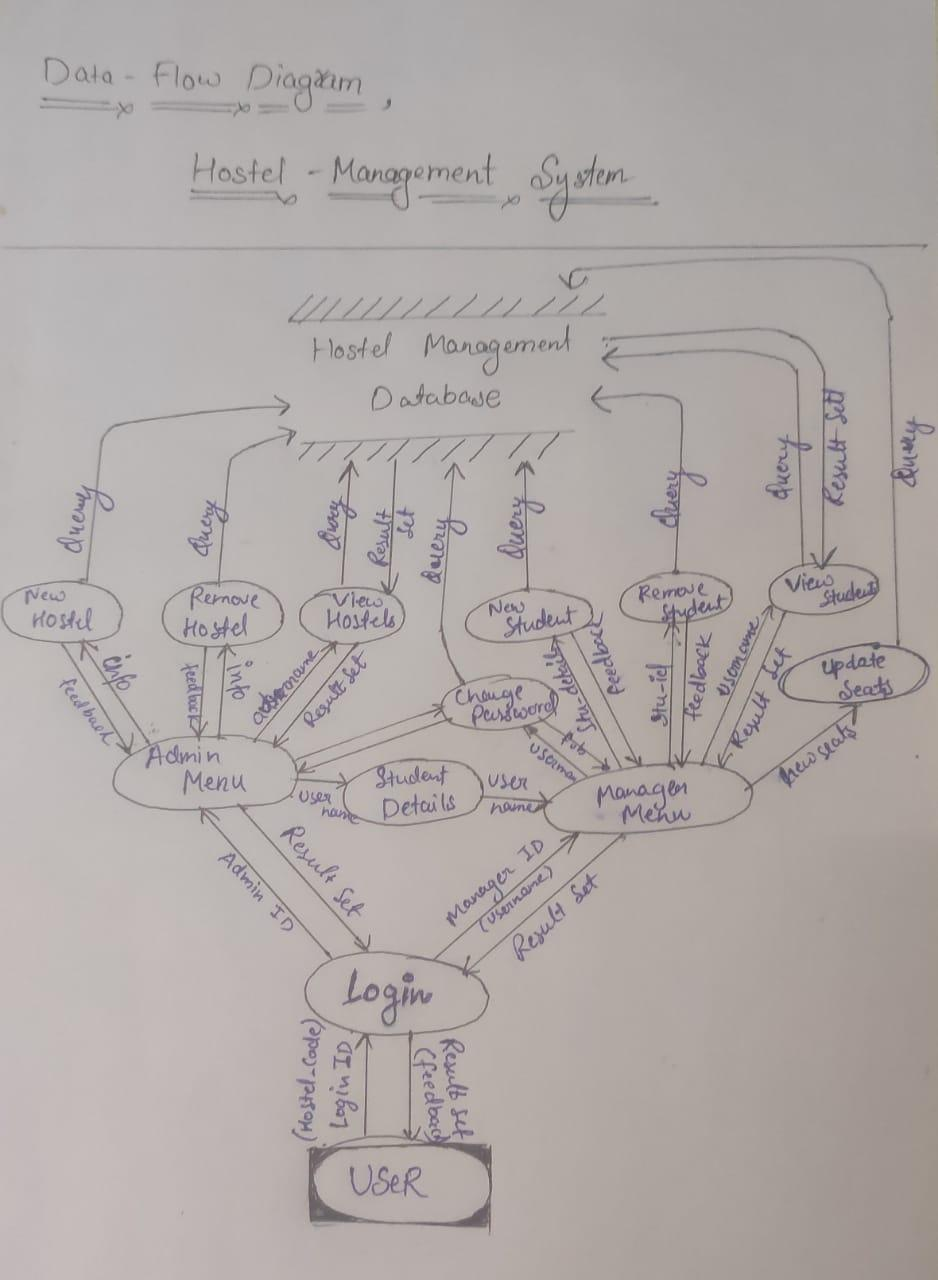 Data - Flow Diagram,
Hostel - Management System
Hostel Management
Database
Query
Query
Query
Result
Set
Query
Query
Query
Query
Result Set
Query
New
Hostel
Remove
Hostel
View
Hostels
New
Student
Remove
Student
View
Student
Update
Seats
Change
Password
feedback
info
feedback
info
username
Result Set
Stu-details
feedback
Stu-id
feedback
Username
Result Set
New seats
Admin
Menu
User
name
Student
Details
User
name
Manager
Menu
Admin ID
Result Set
Manager ID
(username)
Result Set
Login
(Hostel-Code)
Login ID
Result set
(feedback)
USeR